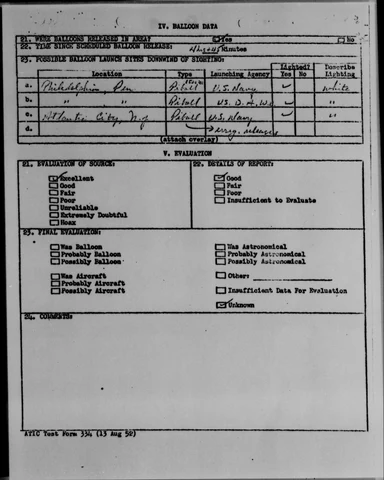 IV. BALLOON DATA
21. WERE BALLOONS RELEASED IN AREA? Yes No
22. TIME SINCE SCHEDULED BALLOON RELEASE: Minutes
23. POSSIBLE BALLOON LAUNCH SITES DOWNWIND OF SIGHTING:
Lighted? Describe
Location Type Launching Agency Yes No Lighting
a. Philadelphia, Pen Piball U.S. Navy White
b. " " Piball U.S. "
c. Atlantic City, N.J. Piball U.S. Navy "
d. releases
(attach overlay)
V. EVALUATION
21. EVALUATION OF SOURCE: 22. DETAILS OF REPORT:
Excellent Good
Good Fair
Fair Poor
Poor Insufficient to Evaluate
Unreliable
Extremely Doubtful
Hoax
23. FINAL EVALUATION:
Was Balloon Was Astronomical
Probably Balloon Probably Astronomical
Possibly Balloon Possibly Astronomical
Was Aircraft Other:
Probably Aircraft
Possibly Aircraft Insufficient Data For Evaluation
Unknown
24. COMMENTS:
ATIC Test Form 334 (13 Aug 52)